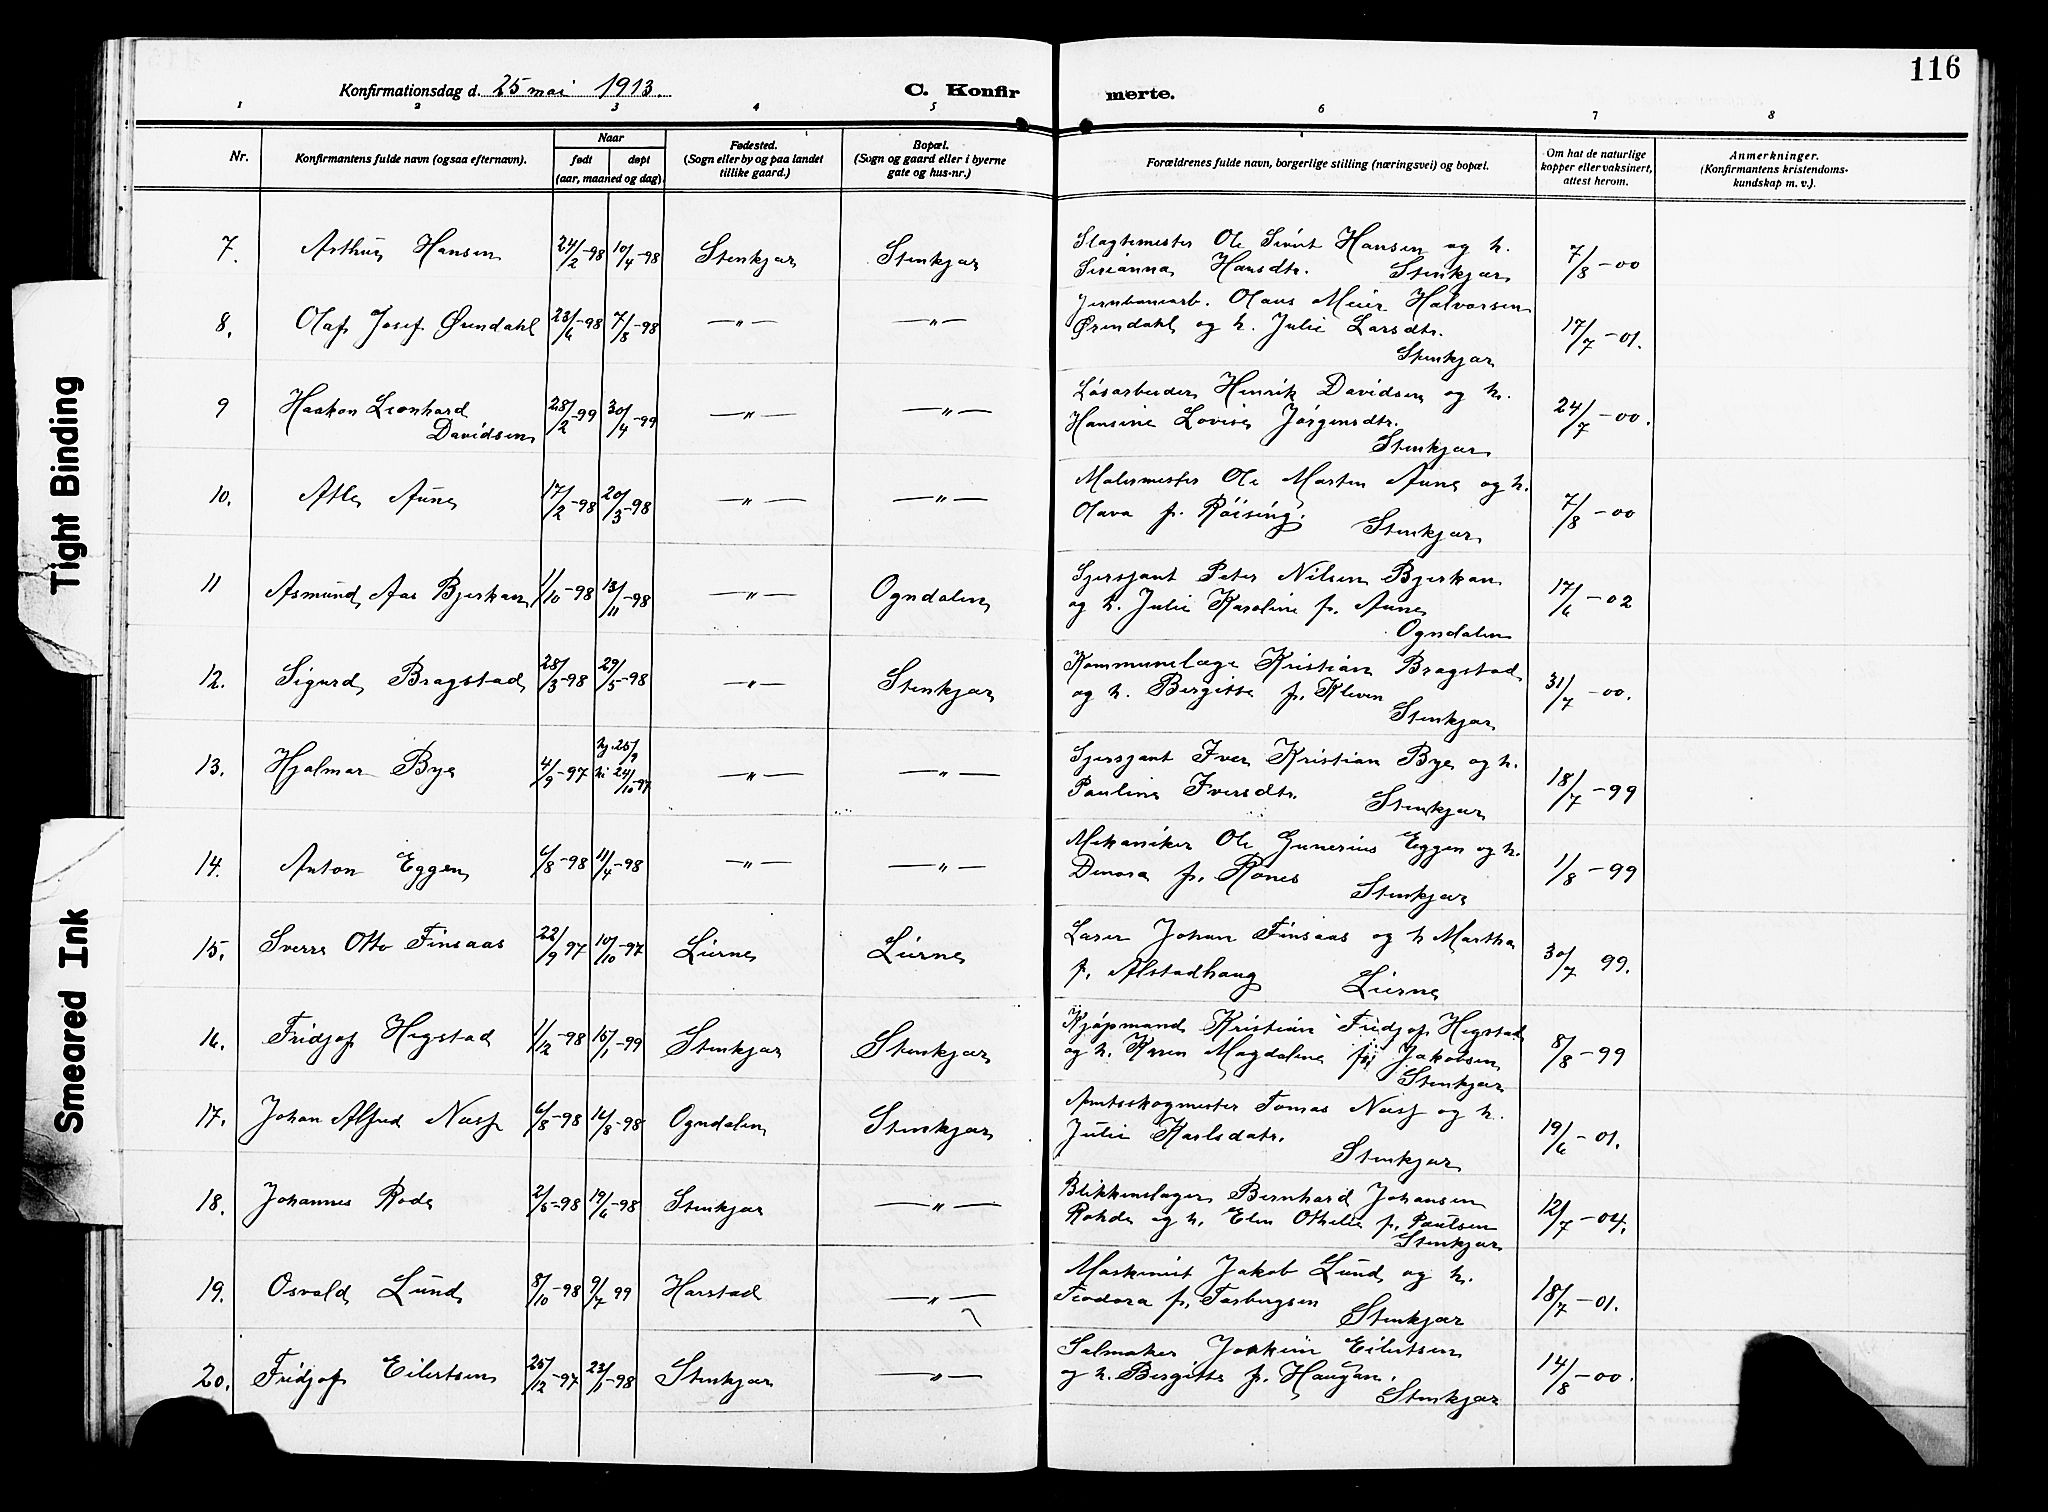 116
Konfirmationsdag d. 25 mai 1913.
C. Konfirmerte.
1 2 3 4 5 6 7 8
Nr.
Konfirmantens fulde navn (ogsaa efternavn).
Naar
født døpt
(aar, maaned og dag).
Fødested.
(Sogn eller by og paa landet
tillike gaard.)
Bopæl.
(Sogn og gaard eller i byerne
gate og hus-nr.)
Forældrenes fulde navn, borgerlige stilling (næringsvei) og bopæl.
Om hat de naturlige
kopper eller vaksinert,
attest herom.
Anmerkninger.
(Konfirmantens kristendoms-
kundskap m. v.).
7. Arthur Hansen 24/2-98 10/4-98 Stenkjær Stenkjær Slagtemester Ole Sivert Hansen og h. 7/8-00
Serianna Hansdtr. Stenkjær
8. Olaf Josef Ørendahl 23/6-98 7/8-98 —"— —"— Jernbanearb. Olaus Meier Halvorsen 17/7-01.
Ørendahl og h. Julie Larsdtr.
Stenkjær
9 Haakon Leonhard 28/2-99 30/4-99 —"— —"— Løsarbeider Henrik Davidsen og h. 24/7-00.
Davidsen Hansine Lovise Jørgensdtr.
Stenkjær
10. Atle Aune 17/2-98 20/3-98 —"— —"— Malermester Ole Martin Aune og h. 7/8-00
Olava f. Röising. Stenkjær
11 Asmund Aas Bjerkan 1/10-98 13/11-98 —"— Ogndalen Sersjant Peter Nilsen Bjerkan 17/6-02
og h. Julie Karoline f. Aune
Ogndalen
12. Sigurd Bragstad 28/3-98 29/5-98 —"— Stenkjær Kommunelæge Kristian Bragstad 31/7-00.
og h. Bergitte f. Kleven
Stenkjær
13. Hjalmar Bye 4/9-97 hj. 25/9 ki 24/10-97 —"— —"— Sersjant Iver Kristian Bye og h. 18/7-99
Pauline Iversdtr. Stenkjær
14. Anton Eggen 6/8-98 11/4-98 —"— —"— Mekaniker Ole Gunerius Eggen og h. 1/8-99
Denora f. Rønes Stenkjær
15. Sverre Otto Finsaas 22/9 97 10/10-97 Lierne Lierne Lærer Johan Finsaas og h Martha 30/7 99.
f. Alstadhaug Lierne
16. Fridjof Hegstad 1/12-98 15/1-99 Stenkjær Stenkjær Kjøpmand Kristian Fridjof Hegstad 8/8-99
og h. Karen Magdalene f. Jakobsen
Stenkjær
17. Johan Alfred Næsj 6/8-98 14/8-98 Ogndalen Stenkjær Amtsskogmester Tomas Næsj og h. 19/6-01.
Julie Karlsdatr. Stenkjær
18. Johannes Rode 2/5-98 19/6-98 Stenkjær —"— Blikkenslager Bernhard Johansen 12/7-04.
Rohde og h. Elen Othelie f. Paulsen
Stenkjær
19. Osvald Lund 8/10-98 9/7 99 Harstad —"— Maskinist Jakob Lund og h. 18/7-01.
Teodora f. Torbergsen Stenkjær
20. Fridjof Eilertsen 25/12-97 23/1-98 Stenkjær —"— Salmaker Joakim Eilertsen 14/8-00.
og h. Bergitte f. Haugan. Stenkjær
Tight Binding
Smeared Ink